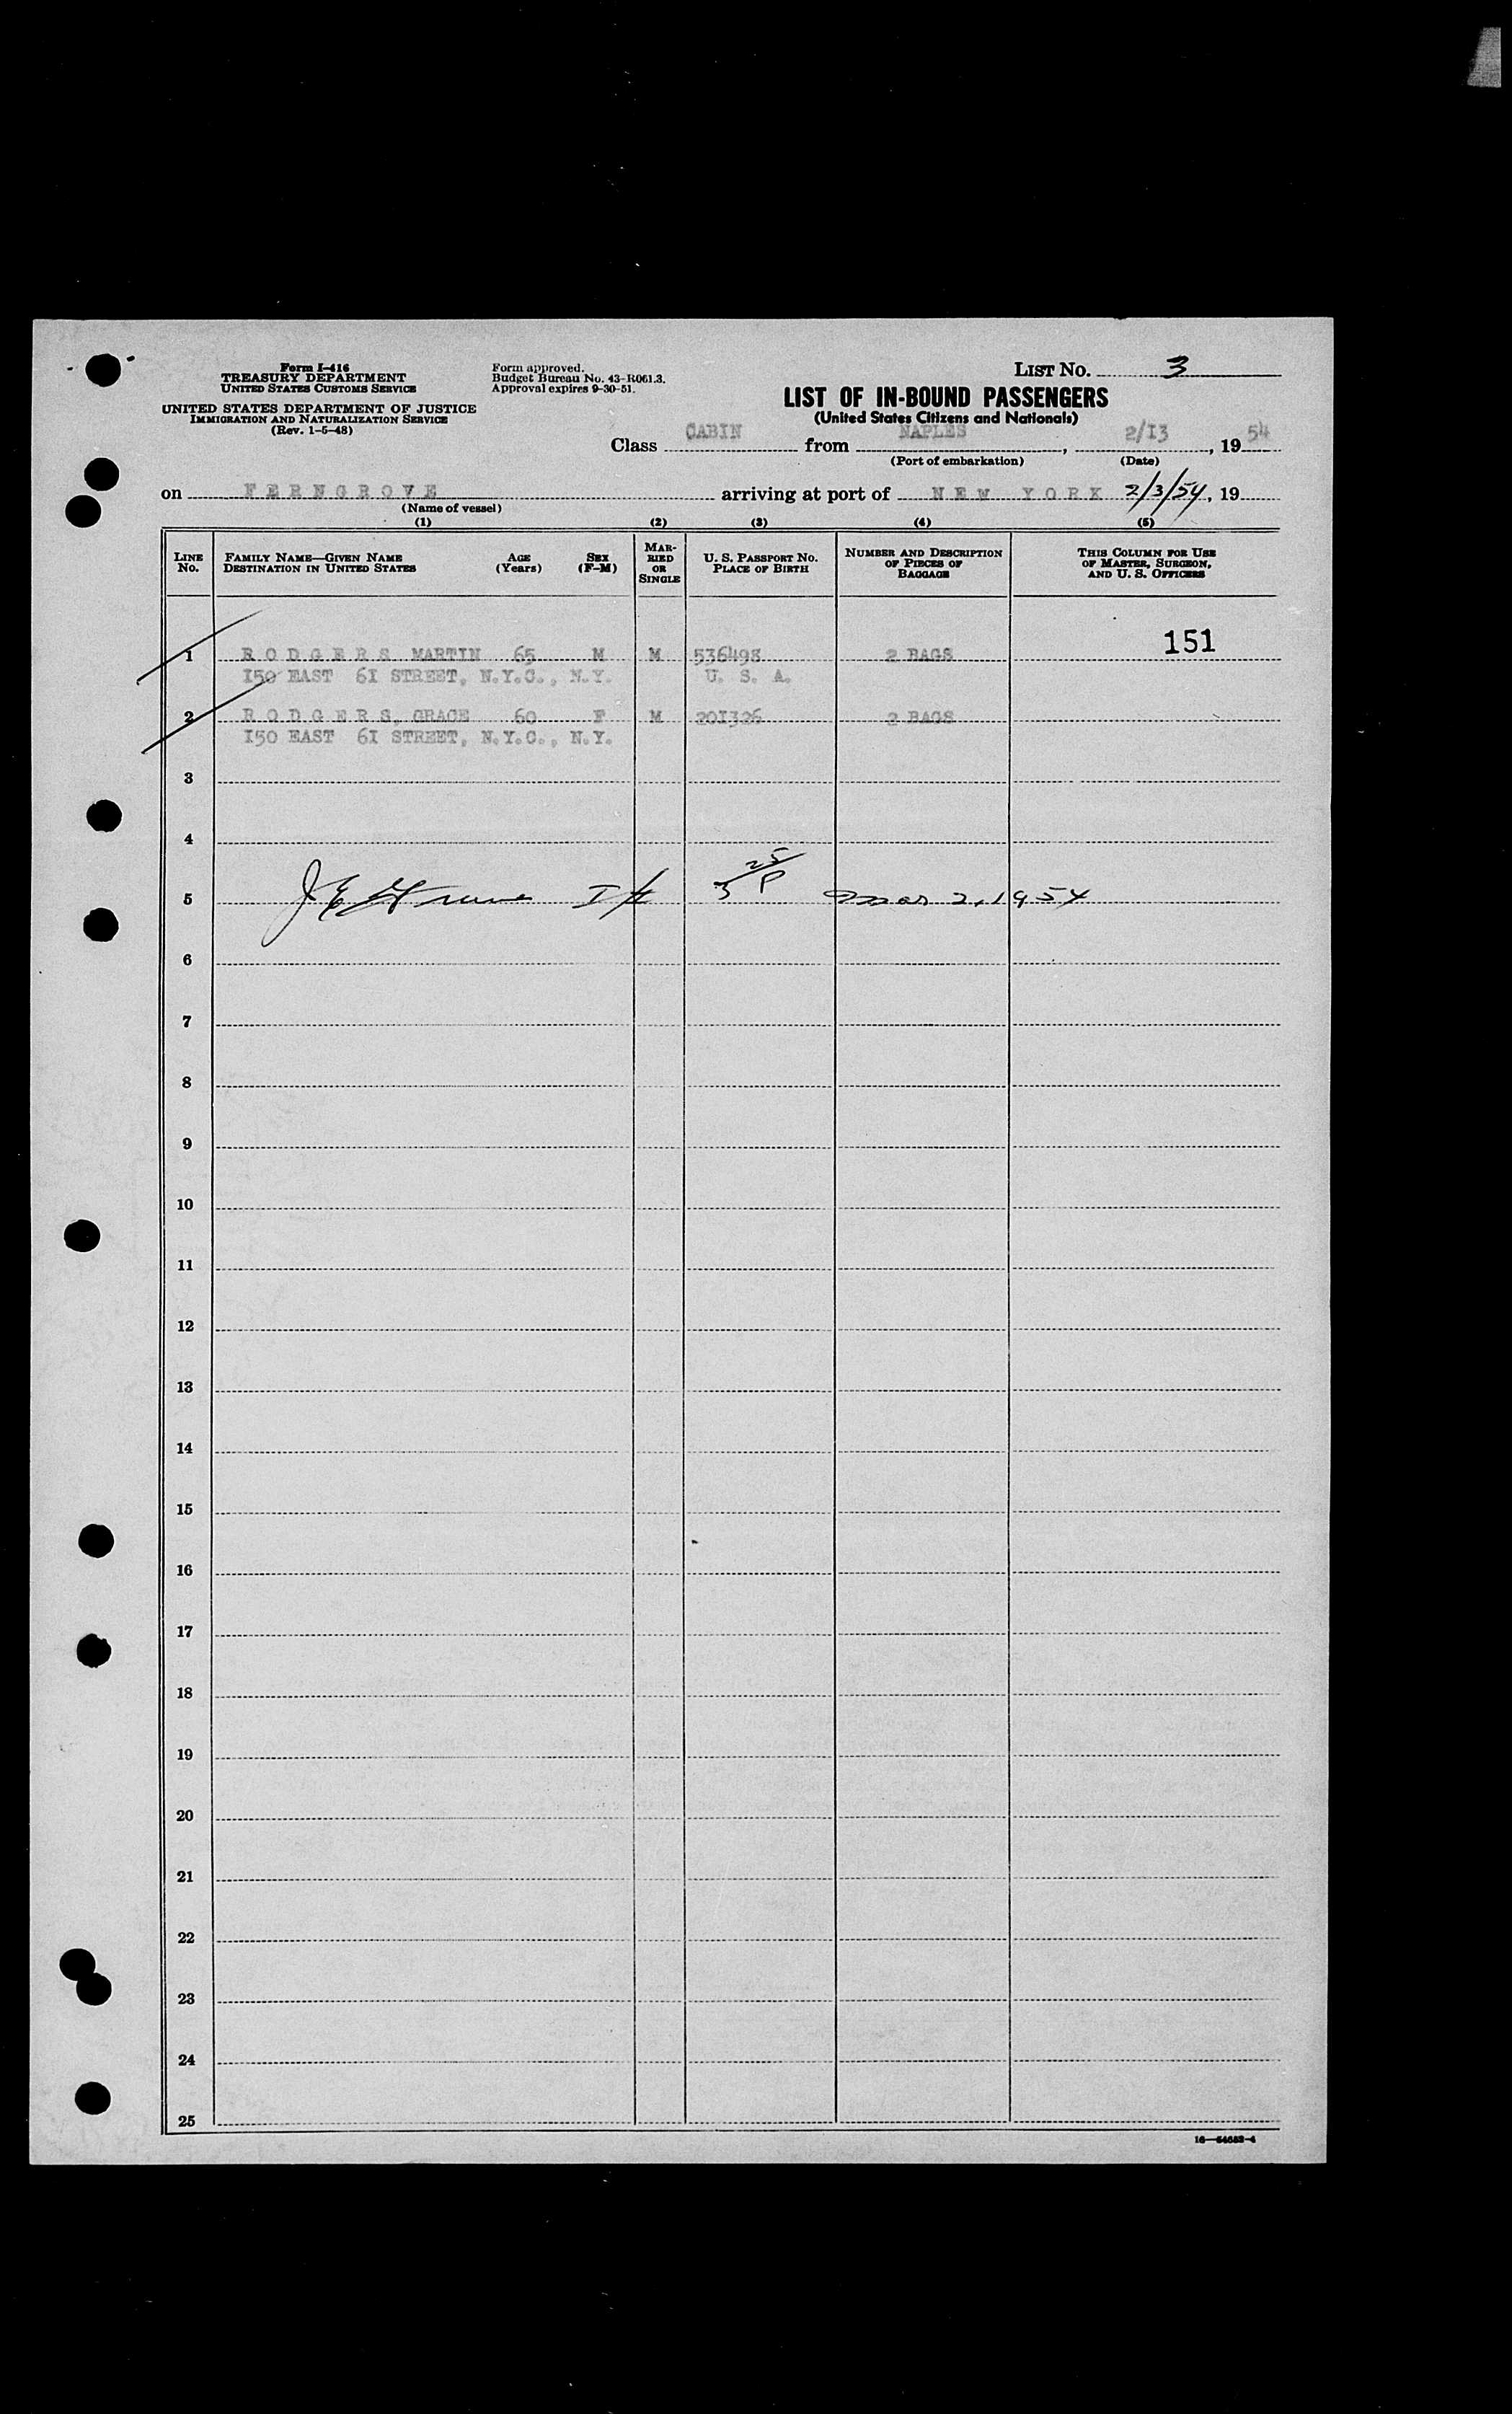 Form I-416
TREASURY DEPARTMENT
UNITED STATES CUSTOMS SERVICE
UNITED STATES DEPARTMENT OF JUSTICE
IMMIGRATION AND NATURALIZATION SERVICE
(Rev. 1-5-48)
Form approved.
Budget Bureau No. 43-R061.3.
Approval expires 9-30-51.
LIST NO. 3
LIST OF IN-BOUND PASSENGERS
(United States Citizens and Nationals)
Class CABIN from NAPLES, 2/I3, 19 54
(Port of embarkation) (Date)
on F E R N G R O V E arriving at port of N E W Y O R K 2/3/54, 19
(Name of vessel)
(1) (2) (3) (4) (5)
LINE NO. FAMILY NAME—GIVEN NAME DESTINATION IN UNITED STATES AGE (Years) SEX (F-M) MARRIED OR SINGLE U. S. PASSPORT NO. PLACE OF BIRTH NUMBER AND DESCRIPTION OF PIECES OF BAGGAGE THIS COLUMN FOR USE OF MASTER, SURGEON, AND U. S. OFFICERS
151
1 R O D G E R S MARTIN 65 M M 536498 2 BAGS
I50 EAST 6I STREET, N.Y.C., N.Y. U. S. A.
2 R O D G E R S, GRACE 60 F M 20I326 2 BAGS
I50 EAST 6I STREET, N.Y.C., N.Y.
3
4
5 Mar 2, 1954
6
7
8
9
10
11
12
13
14
15
16
17
18
19
20
21
22
23
24
25